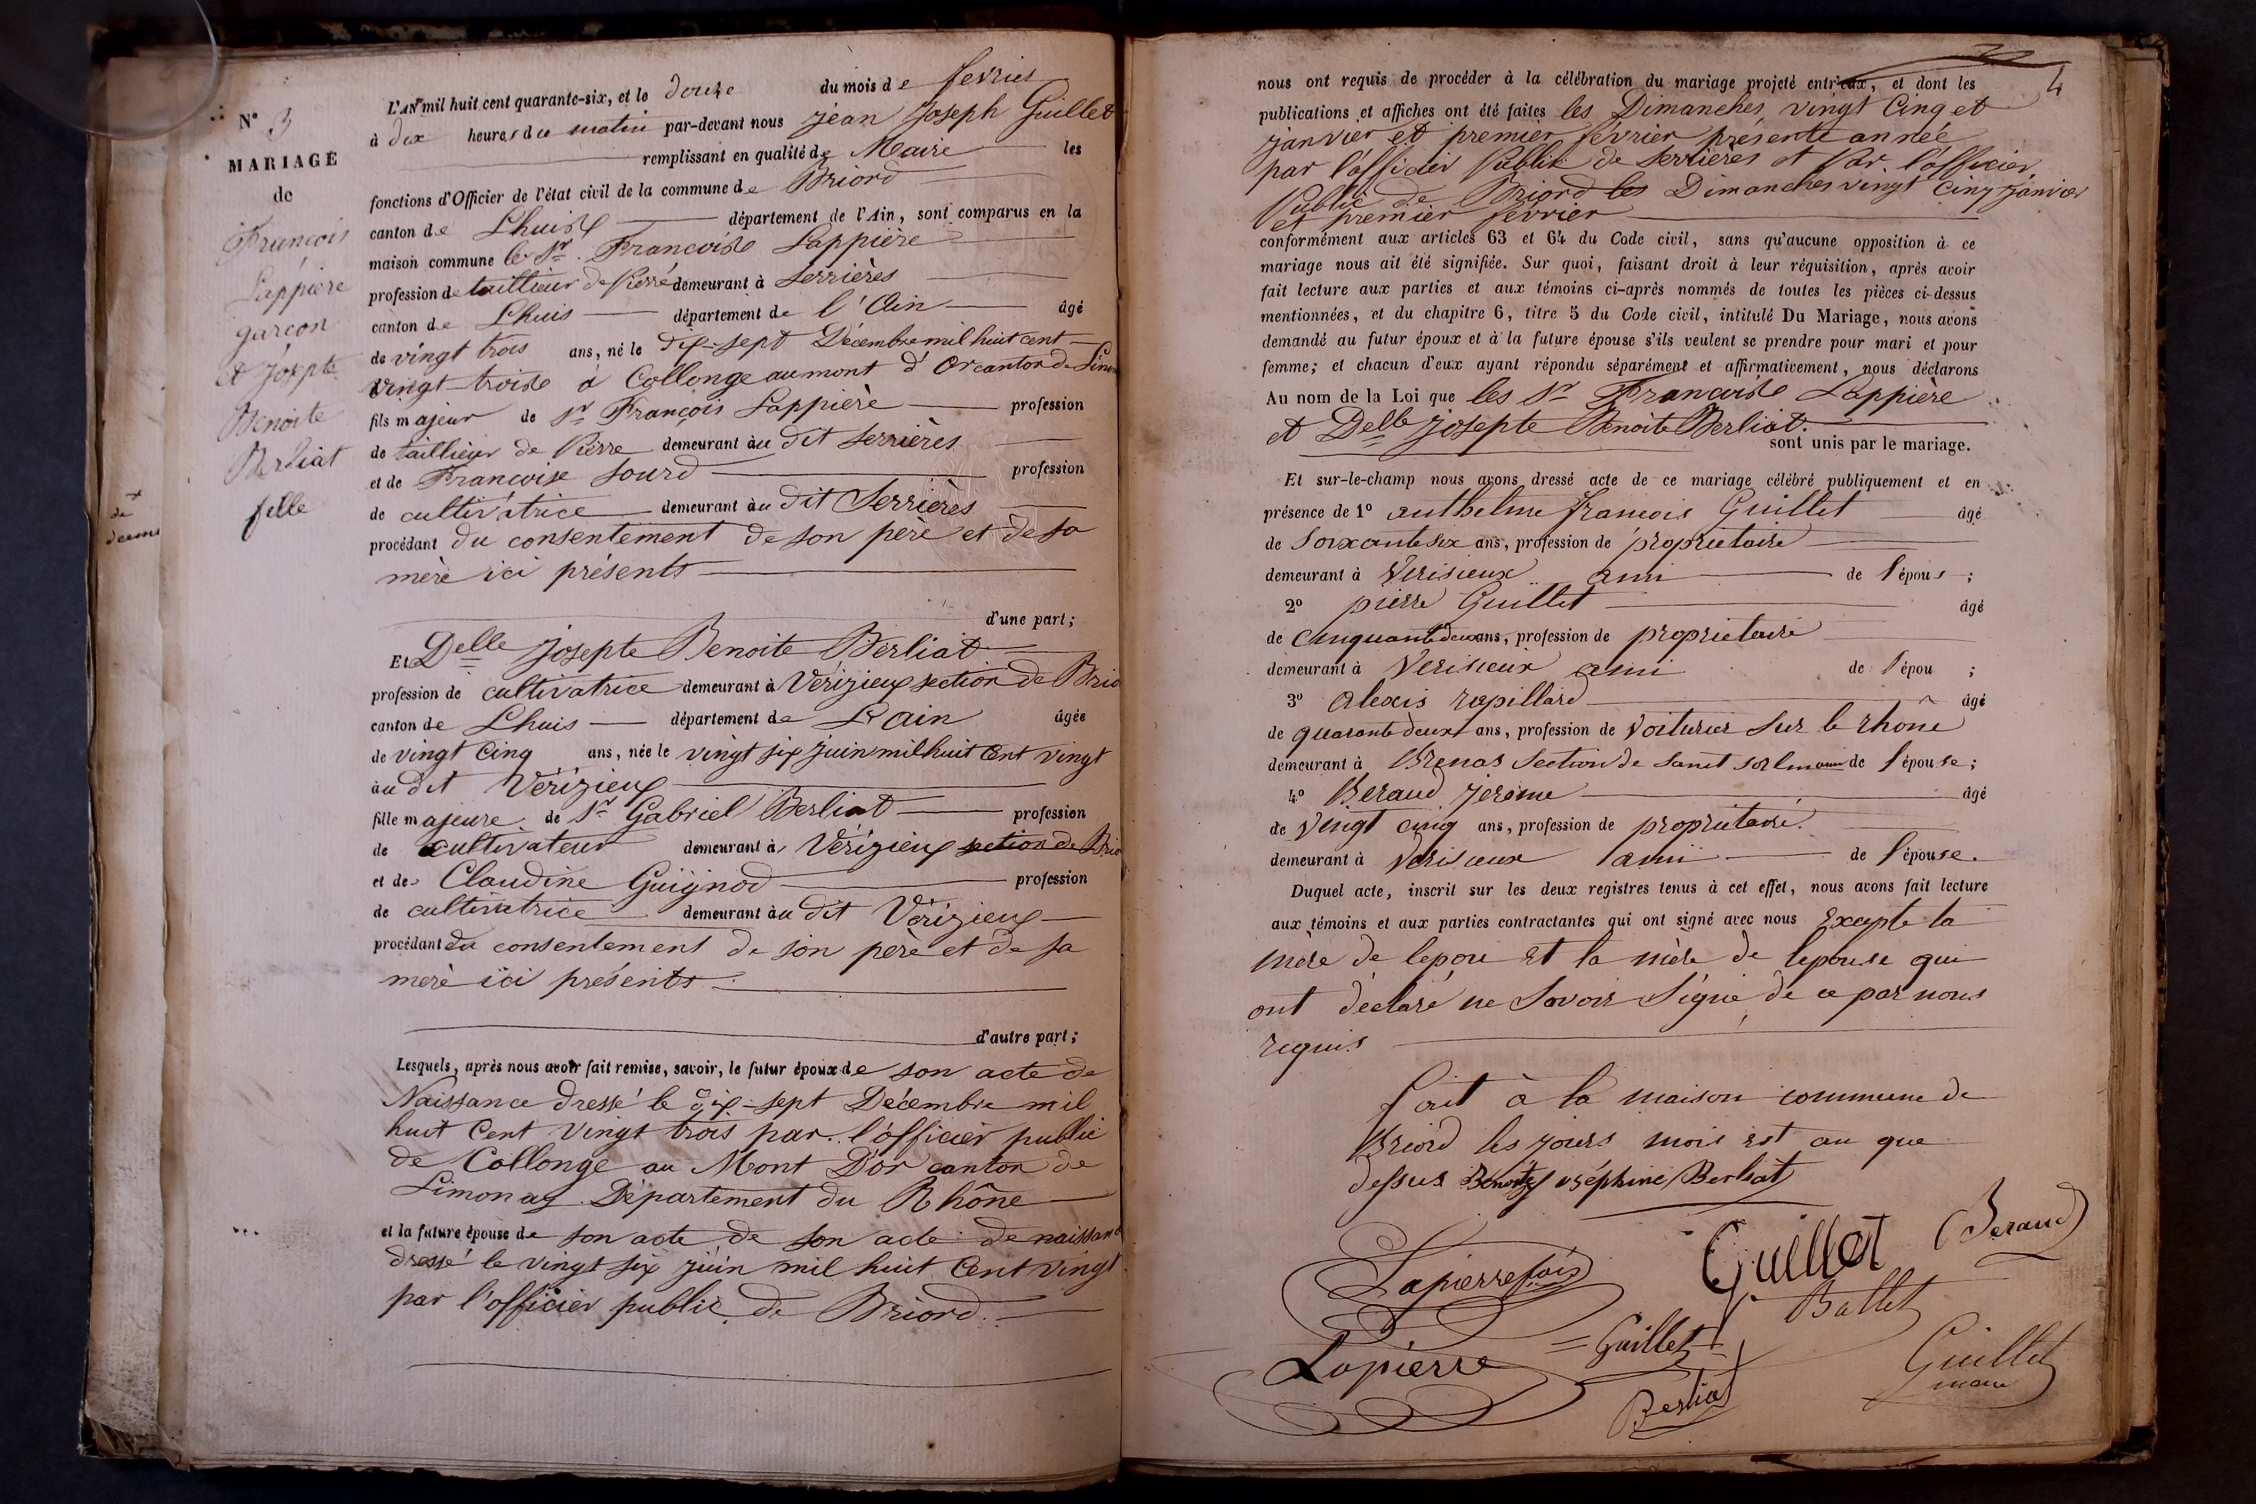 N° 3
MARIAGE
de
François
Lappière
garçon
et Jospte
Benoite
Berliat
fille
de
L'AN mil huit cent quarante-six, et le douze du mois de fevrier
à dix heures du matin par-devant nous jéan Joseph Guillet
remplissant en qualité de Maire les
fonctions d'Officier de l'état civil de la commune de Briord
canton de Lhuis département de l'Ain, sont comparus en la
maison commune le Sr. Francoise Lappière
profession de taillieur de Pierre demeurant à Serrières
canton de Lhuis département de l'Ain âgé
de vingt trois ans, né le dix-sept Décembre mil huit cent
vingt-troise à Collonge au mont d'Or canton de Limon
fils majeur de Sr François Lappière profession
de taillieur de Pierre demeurant àu dit Serrières
et de Francoise Sourd profession
de cultivatrice demeurant àu dit Serrières
procédant du consentement de son père et de sa
mère ici présents
d'une part;
Et Delle Josepte Benoite Berliat
profession de cultivatrice demeurant à Vérizieux section de Brio
canton de Lhuis département de L'ain âgée
de vingt cinq ans, née le vingt six juin mil huit cent vingt
àu dit Vérizieux
fille majeure de Sr Gabriel Berliat profession
de cultivateur demeurant à Vérizieux section de Brio
et de Claudine Guignod profession
de cultivatrice demeurant àu dit Vérizieux
procédant du consentement de son père et de sa
merè ici présents
d'autre part;
Lesquels, après nous avoir fait remise, savoir, le futur époux de son acte de
Naissance dressé le dix-sept Décembre mil
huit Cent vingt trois par l'officier public
de Collonge au Mont D'or canton de
Limonay Département du Rhône
et la future épouse de son acte de son acte de naissan
dressé le vingt six juin mil huit Cent vingt
par l'officier public de Briord.
4
nous ont requis de procéder à la célébration du mariage projeté entr'eux, et dont les
publications et affiches ont été faites les Dimanches vingt Cinq et
janvier et premier février présente année
par l'officier Public de Serrières et Par l'officier
Public de Briord les Dimanches vingt cinq Janvier
et premier février
conformément aux articles 63 et 64 du Code civil, sans qu'aucune opposition à ce
mariage nous ait été signifiée. Sur quoi, faisant droit à leur réquisition, après avoir
fait lecture aux parties et aux témoins ci-après nommés de toutes les pièces ci-dessus
mentionnées, et du chapitre 6, titre 5 du Code civil, intitulé Du Mariage, nous avons
demandé au futur époux et à la future épouse s'ils veulent se prendre pour mari et pour
femme; et chacun d'eux ayant répondu séparément et affirmativement, nous déclarons
Au nom de la Loi que les Sr Francoise Lappière
et Delle Josepte Benoite Berliat.
sont unis par le mariage.
Et sur-le-champ nous avons dressé acte de ce mariage célébré publiquement et en
présence de 1° anthelme francois Guillet âgé
de Soixante six ans, profession de proprietaire
demeurant à Verisieux ami de l'épous;
2° pierre Guillet âgé
de cinquante deux ans, profession de proprietaire
demeurant à Verisieux ami de l'épou;
3° alexis rapillard âgé
de quarante deux ans, profession de voiturier sur le rhône
demeurant à Brenas Section de Sanct Sorlin ami de l'épouse;
4° Beraud jerome âgé
de vingt cinq ans, profession de proprietaire.
demeurant à Verisieux ami de l'épouse.
Duquel acte, inscrit sur les deux registres tenus à cet effet, nous avons fait lecture
aux témoins et aux parties contractantes qui ont signé avec nous Excepte la
mère de lepou Et la mère de lepouse qui
ont déclaré ne Savoir Signé de ce par nous
requis
fait à la maison commune de
Briord les jours mois est an que
dessus Benoite joséphine Berliat
Lapierre fois Guillet Beraud
Ballet
Lapierre Guillet
Berliat
Guillet
maire